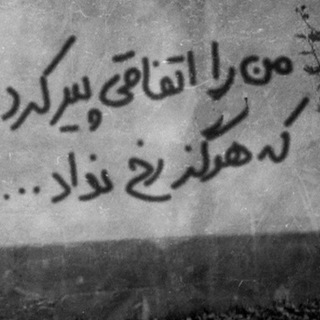 من را اتفاقی پیر کرد
که هرگز رخ نداد...